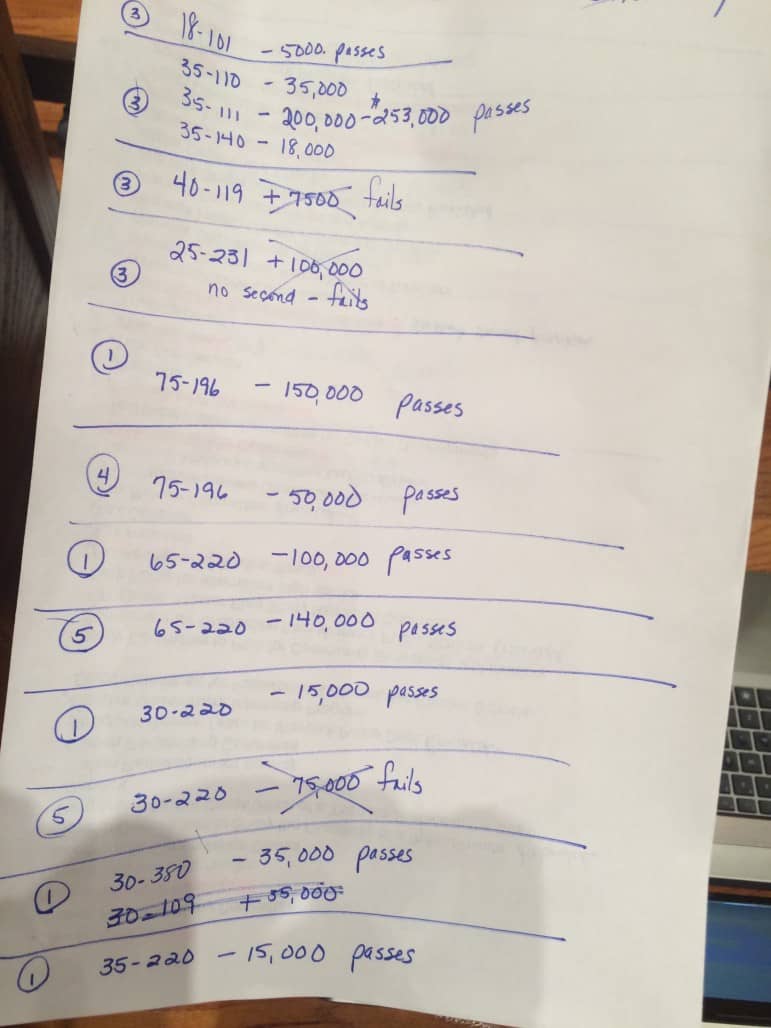 ③ 18-101 - 5000. passes
35-110 - 35,000
③ 35-111 - 200,000 - $253,000 passes
35-140 - 18,000
③ 40-119 + 7500 fails
25-231 + 100,000
③ no second - fails
① 75-196 - 150,000 passes
④ 75-196 - 50,000 passes
① 65-220 - 100,000 passes
⑤ 65-220 - 140,000 passes
① 30-220 - 15,000 passes
⑤ 30-220 - 75,000 fails
① 30-380 - 35,000 passes
30-109 + 35,000
① 35-220 - 15,000 passes